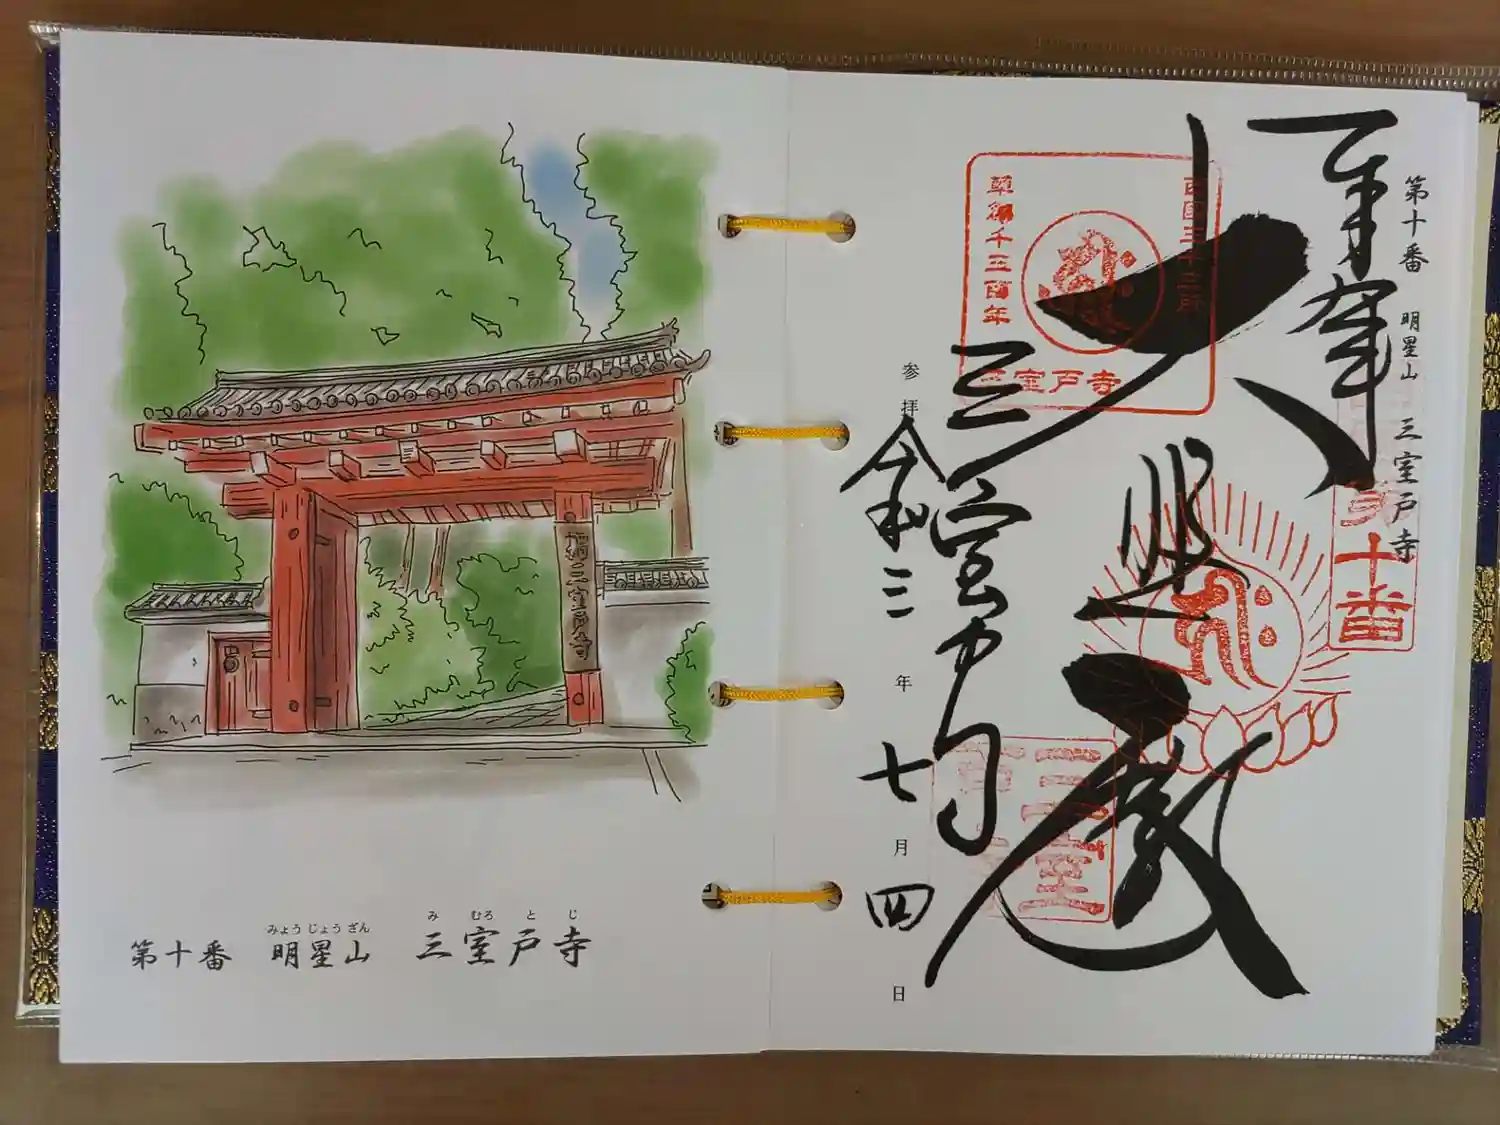 第十番 明星山 三室戸寺
みょうじょうざん みむろとじ
西三室戸寺
第十番 明星山 三室戸寺
奉拝
大悲殿
三室戸寺
参拝 令和三年 七月四日
西国三十三所
草創千三百年
三室戸寺
十番